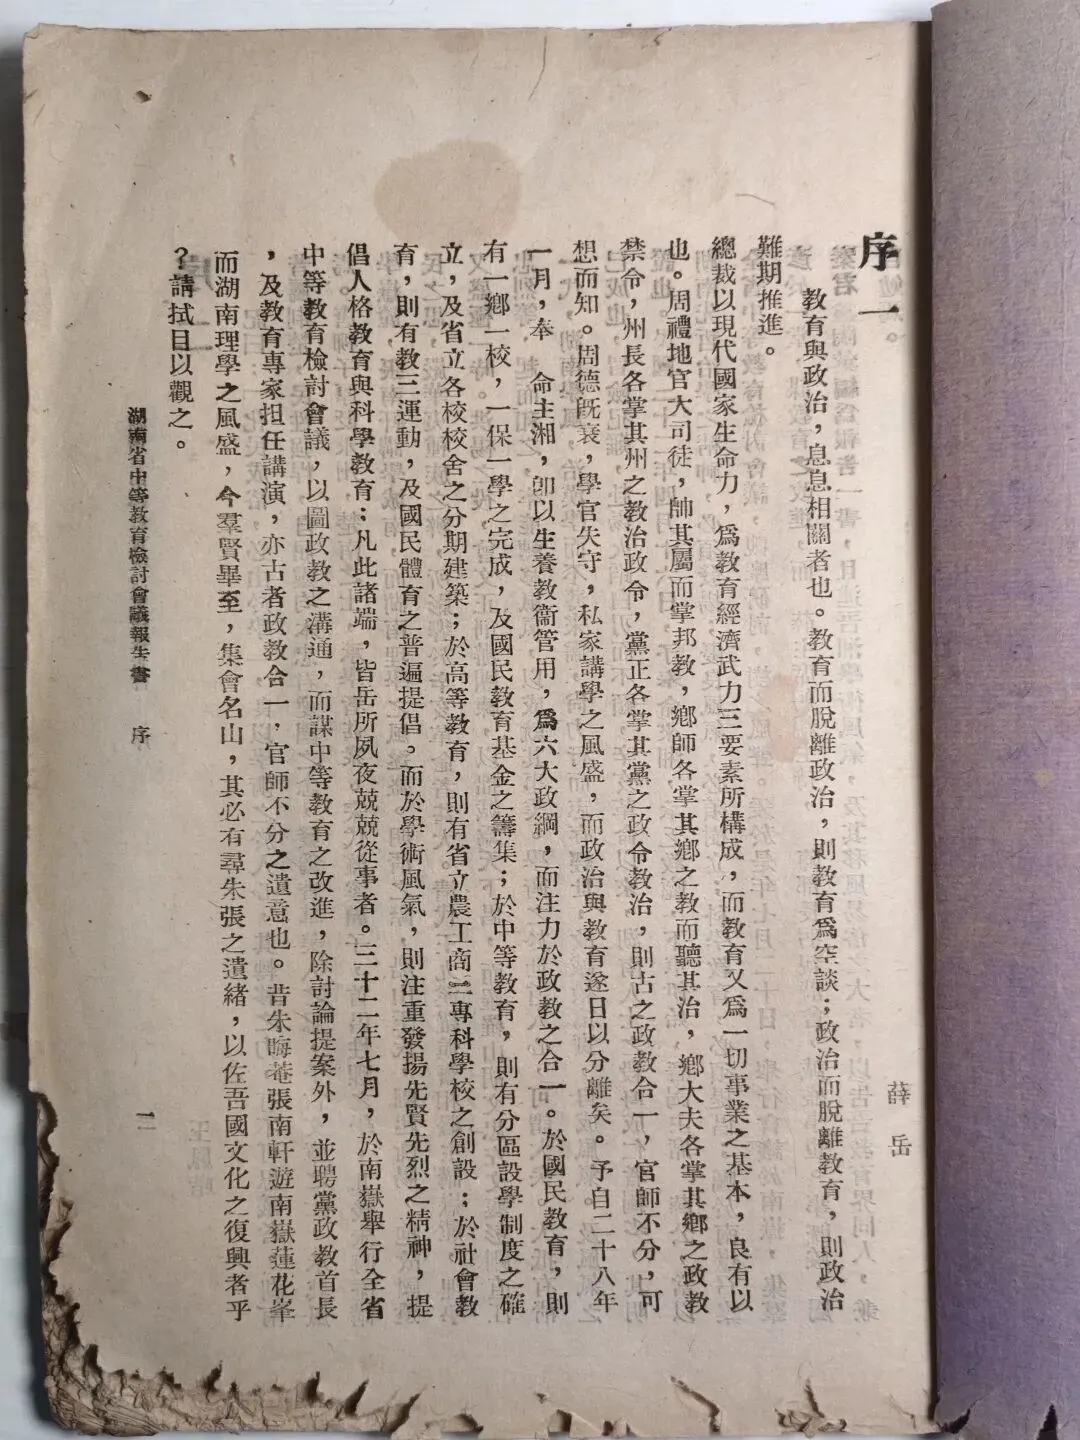 序一
薛岳
教育與政治，息息相關者也。教育而脫離政治，則教育爲空談；政治而脫離教育，則政治
難期推進。
總裁以現代國家生命力，爲教育經濟武力三要素所構成，而教育又爲一切事業之基本，良有以
也。周禮地官大司徒，帥其屬而掌邦教，鄉師各掌其鄉之教而聽其治，鄉大夫各掌其鄉之政教
禁令，州長各掌其州之教治政令，黨正各掌其黨之政令教治，則古之政教合一，官師不分，可
想而知。周德旣衰，學官失守，私家講學之風盛，而政治與教育遂日以分離矣。予自二十八年
一月，奉　命主湘，卽以生養教衞管用，爲六大政綱，而注力於政教之合一。於國民教育，則
有一鄉一校，一保一學之完成，及國民教育基金之籌集；於中等教育，則有分區設學制度之確
立，及省立各校校舍之分期建築；於高等教育，則有省立農工商三專科學校之創設；於社會教
育，則有教三運動，及國民體育之普遍提倡。而於學術風氣，則注重發揚先賢先烈之精神，提
倡人格教育與科學教育：凡此諸端，皆岳所夙夜兢兢從事者。三十二年七月，於南嶽舉行全省
中等教育檢討會議，以圖政教之溝通，而謀中等教育之改進，除討論提案外，並聘黨政教首長
，及教育專家担任講演，亦古者政教合一，官師不分之遺意也。昔朱晦菴張南軒遊南嶽蓮花峯
而湖南理學之風盛，今羣賢畢至，集會名山，其必有尋朱張之遺緒，以佐吾國文化之復興者乎
？請拭目以觀之。
湖南省中等教育檢討會議報告書　序
二